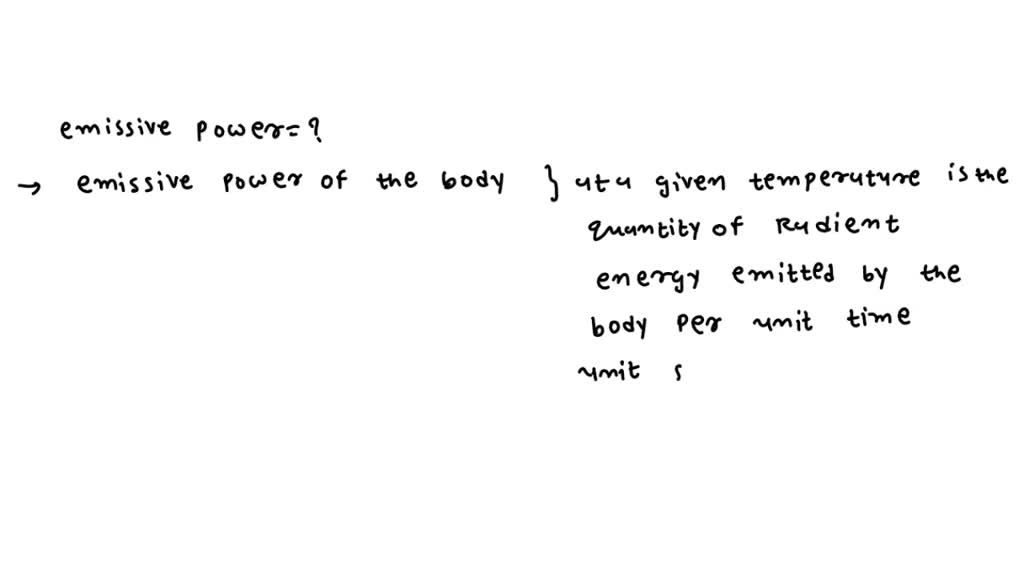 emissive power=?
→ emissive power of the body } at a given temperature is the
quantity of Radient
energy emitted by the
body per unit time
unit s